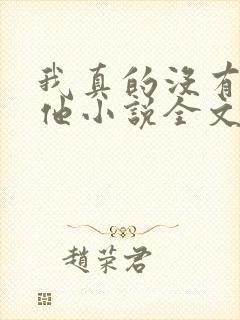 我真的没有
他小说全文
趙荣君